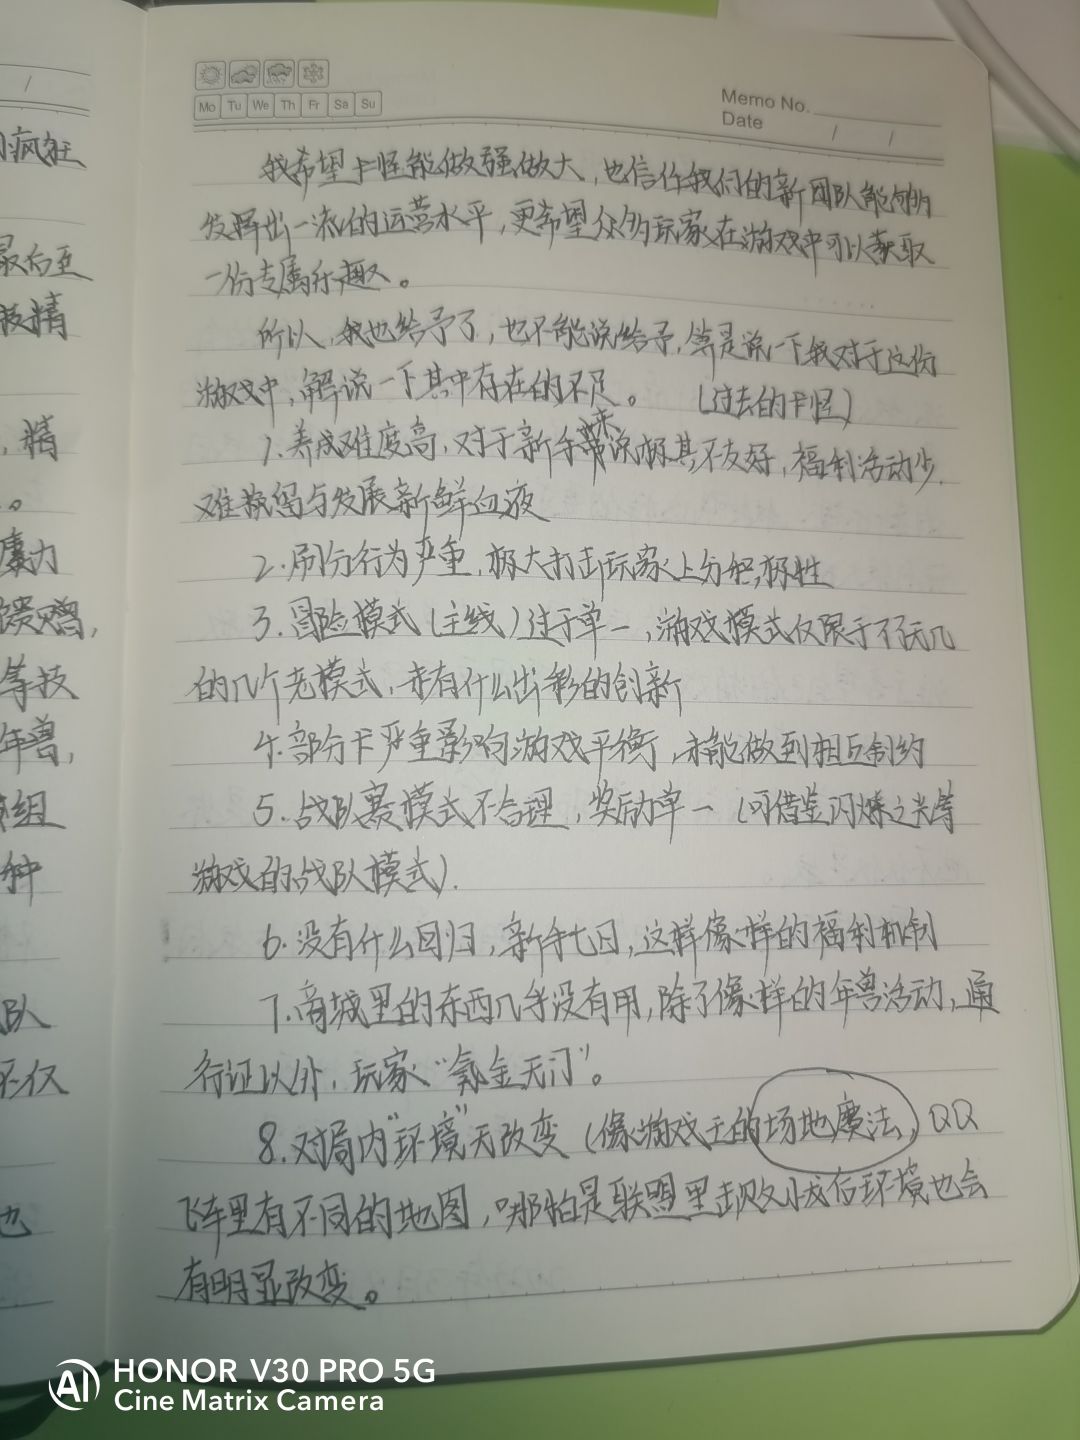 Mo Tu We Th Fr Sa Su
Memo No.
Date / /
我希望卡怪能做强做大，也信任我们的新团队能够
发挥出一流的运营水平，更希望众多玩家在游戏中可以获取
一份专属乐趣。
所以，我也给予了，也不能说给予，算是说一下我对于这份
游戏中，解说一下其中存在的不足。（过去的卡怪）
1.养成难度高，对于新手来说极其不友好，福利活动少，
难挽留与发展新鲜血液
2.刷分行为严重，极大打击玩家上分积极性
3.冒险模式（主线）过于单一，游戏模式仅限于不玩几
的几个老模式，未有什么出彩的创新
4.部分卡严重影响游戏平衡，未能做到相互制约
5.战队赛模式不合理，奖励单一（可借鉴闪烁之光等
游戏的战队模式）.
6.没有什么回归，新手七日，这样像样的福利机制
7.商城里的东西几乎没有用，除了像样的年兽活动，通
行证以外，玩家“氪金无门”。
8.对局内“环境”无改变（像游戏王的场地魔法，QQ
飞车里有不同的地图，哪怕是联盟里击败小龙后环境也会
有明显改变。
/
疯狂
最后至
技精
，精
。
魔力
馈赠，
等技
年兽，
组
种
队
不仅
也
AI HONOR V30 PRO 5G
Cine Matrix Camera